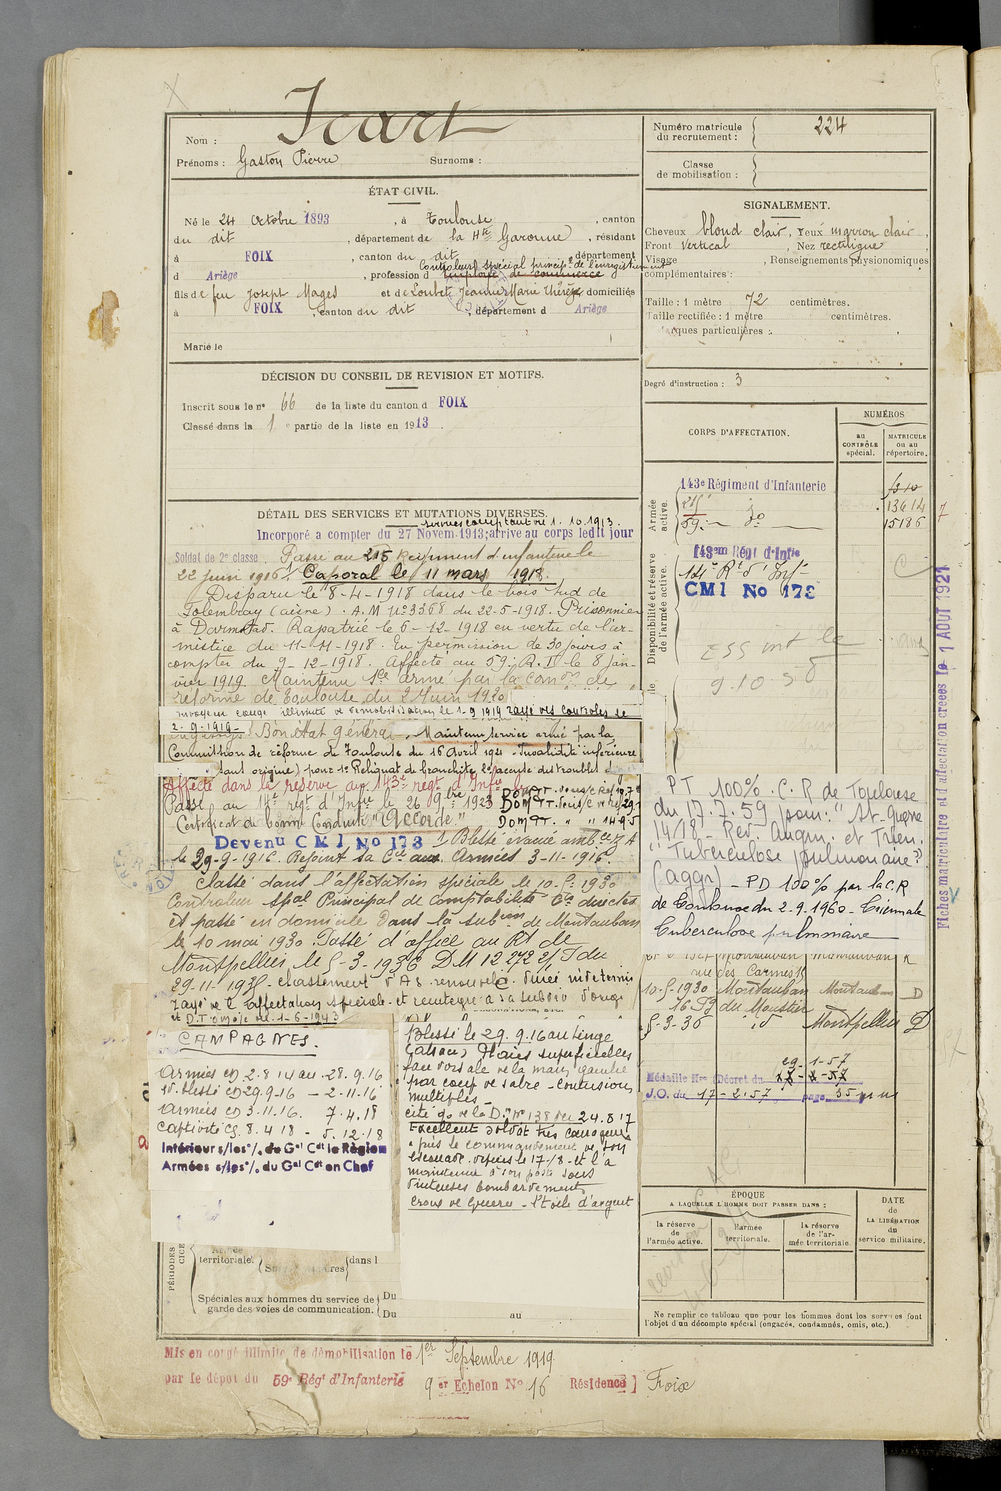 Icart
Nom :
Prénoms : Gaston Pierre Surnoms :
Numéro matricule du recrutement : 224
Classe de mobilisation :
ÉTAT CIVIL.
Né le 24 Octobre 1893, à Toulouse, canton
du dit, département de la Hte Garonne, résidant
à FOIX, canton du dit, département
Contrôleur spécial princip. de l'enregistrement
d Ariège, profession d'employé de commerce
fils de feu Joseph Mages et de Loubet Jeanne Marie Thérèze, domiciliés
à FOIX, canton du dit, département d Ariège
Marié le
SIGNALEMENT.
Cheveux blond clair, Yeux marron clair,
Front Vertical, Nez rectiligne
Visage, Renseignements physionomiques
complémentaires :
Taille : 1 mètre 72 centimètres.
Taille rectifiée : 1 mètre centimètres.
Marques particulières :
Degré d'instruction : 3
DÉCISION DU CONSEIL DE REVISION ET MOTIFS.
Inscrit sous le n° 66 de la liste du canton d FOIX
Classé dans la 1e partie de la liste en 1913.
DÉTAIL DES SERVICES ET MUTATIONS DIVERSES.
services comptant du 1.10.1913.
Incorporé a compter du 27 Novem. 1913; arrivé au corps ledit jour
Soldat de 2e classe, Passé au 215 Régiment d'infanterie le
22 juin 1916. Caporal le 11 mars 1918.
Disparu le 8-4-1918 dans le bois sud de
Folembray (aisne). A.M N° 3368 du 22-5-1918. Prisonnier
à Darmstad. Rapatrié le 5-12-1918 en vertu de l'ar-
mistice du 11-11-1918. En permission de 30 jours à
compter du 9-12-1918. Affecté au 59e R.I le 8 Jan-
vier 1919. Maintenu sce armé par la Comon de
reforme de Toulouse du 2 Juin 1920
envoyé en congé illimité de démobilisation le 1-9 1919 rayé des contrôles le
2-9-1919- Bon état général. Maintenu service armé par la
Commission de réforme de Toulouse du 16 avril 1921. Invalidité inférieure
Affecté dans la réserve au 143e régt d'Infrie
Passé au 14e régt d'Infrie le 26 9bre 1923
Certificat de bonne Conduite "Accordé"
Devenu CMI No 173 Blessé évacué
le 29-9-1916. Rejoint sa Cie aux Armées 3-11-1916
Classé dans l'affectation spéciale le 10-5-1930
Contrôleur Spal Principal de Comptabilité
et passé en domicile dans la subon de Montauban
le 10 mai 1930. Passé d'office au Rt de
Montpellier le 5-3-1936 DM 12 272 du
29-11-1935- Classement d'A S renouvelé. Durée indétermi
Rayé de l'affectation spéciale et réintégré à sa subdiv d'origi
1-6-1943
CORPS D'AFFECTATION.
NUMÉROS
au CONTRÔLE spécial.
MATRICULE ou au répertoire.
Armée active.
143e Régiment d'Infanterie
215e
59e do
13614
15186
Disponibilité et réserve de l'armée active.
143em Régt d'Infie
14e Rt d'Infie
CMI No 173
Fiches matriculaire et d'affectation créées le 1 AOUT 1921
PT 100% C.R de Toulouse
du 17.7.59 pour: "At. Guerre
14/18 - Rev. Augm. et Trien.
"Tuberculose pulmonaire"
(aggr) - PD 100% par la C.R
de Toulouse du 2.9.1960 - Triennale
Tuberculose pulmonaire
rue des Carmes
10-5-1930 Montauban Montauban D
16 Bd du Moustier
5-3-36 id Montpellier D
Médaille Mre Décret du
J.O. du 17-2-57 page
CAMPAGNES.
Armées CD 2.8.14 au 28.9.16
Int. blessé CD 29.9-16 - 2-11-16
Armées CD 3.11.16. 7.4.18
Captivité CS. 8.4.18 - 5.12.18
Intérieur s/les o/. du Gal Cdt la Région
Armées s/les o/. du Gal Cdt en Chef
Blessé le 29.9.16 au Linge
(alsace) Plaies superficielles
face dorsale de la main gauche
par coup de sabre - Contusions
multiples -
Cité go de la D. N° 138 du 24.8.17
Excellent soldat très courageux
a pris le commandement de son
escouade depuis le 17/8 - et l'a
maintenue à son poste sous
d'intenses bombardements
Croix de Guerre - Etoile d'argent
territoriale.
dans l
Spéciales aux hommes du service de
garde des voies de communication.
Du
Du au
ÉPOQUE
A LAQUELLE L'HOMME DOIT PASSER DANS :
la réserve de l'armée active.
l'armée territoriale.
la réserve de l'armée territoriale.
DATE de LA LIBÉRATION du service militaire.
Ne remplir ce tableau que pour les hommes dont les services font
l'objet d'un décompte spécial (engagés, condamnés, omis, etc.).
Mis en congé illimité de démobilisation le 1er Septembre 1919
par le dépôt du 59e Régt d'Infanterie 9er Echelon No 16 Résidence] Foix